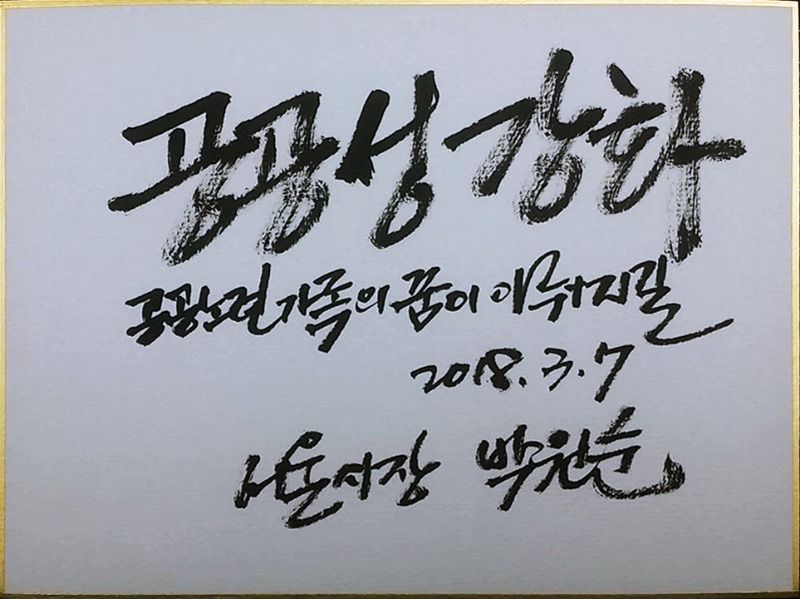 공공성 강화
공공노련 가족의 꿈이 이뤄지길
2018. 3. 7
서울시장 박원순